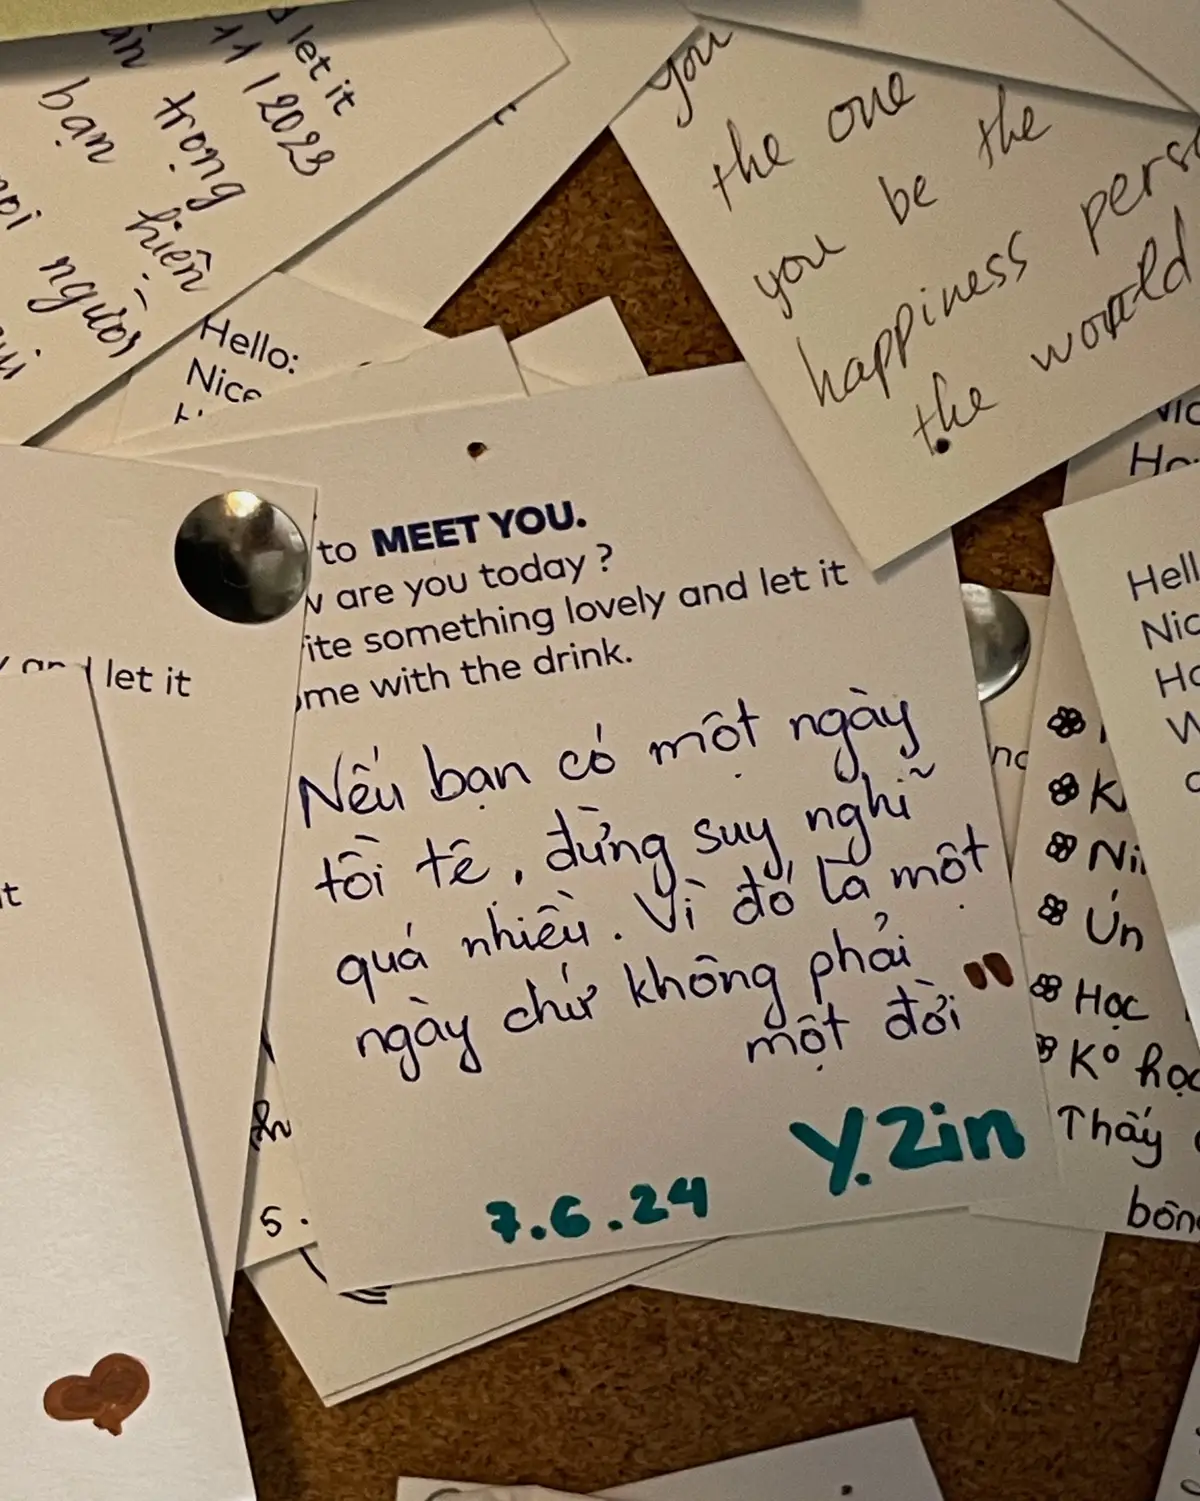 let it
11/2023
trọng
bạn hiện
người
you
the one
you be the
happiness
the world
Hello:
Nice
to MEET YOU.
are you today ?
something lovely and let it
with the drink.
Nếu bạn có một ngày
tồi tệ, đừng suy nghĩ
quá nhiều. Vì đó là một
ngày chứ không phải
một đời "
Y.Zin
7.6.24
let it
5.
Học
K° học
Thấy